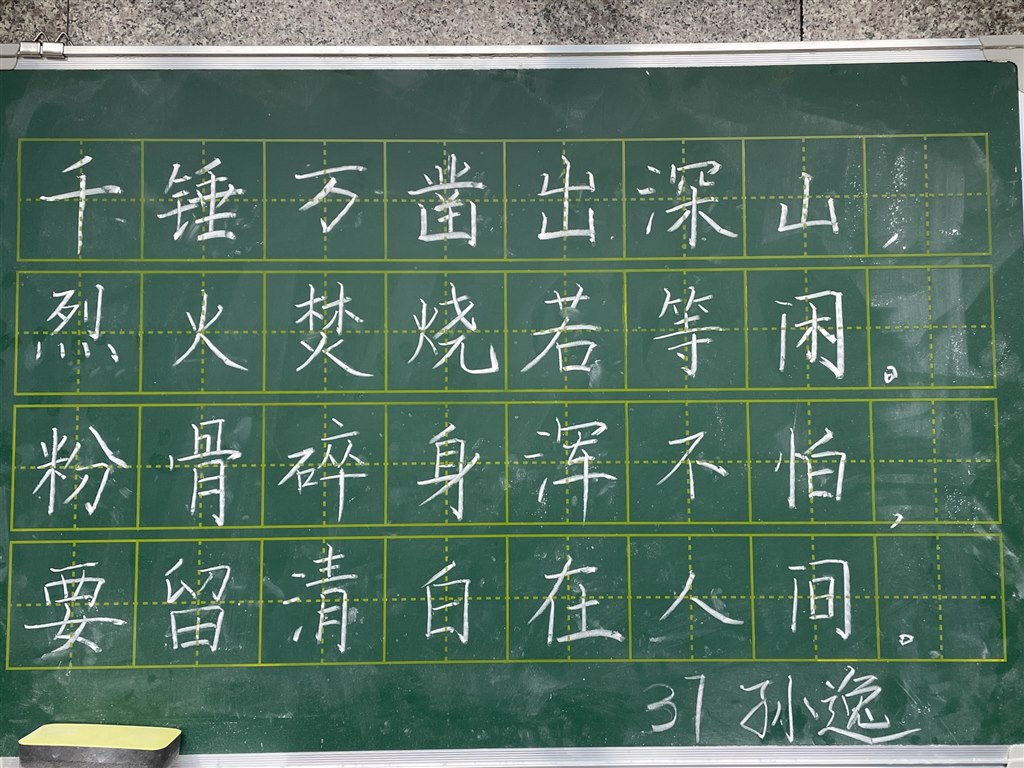 千锤万凿出深山，
烈火焚烧若等闲。
粉骨碎身浑不怕，
要留清白在人间。
37 孙逸